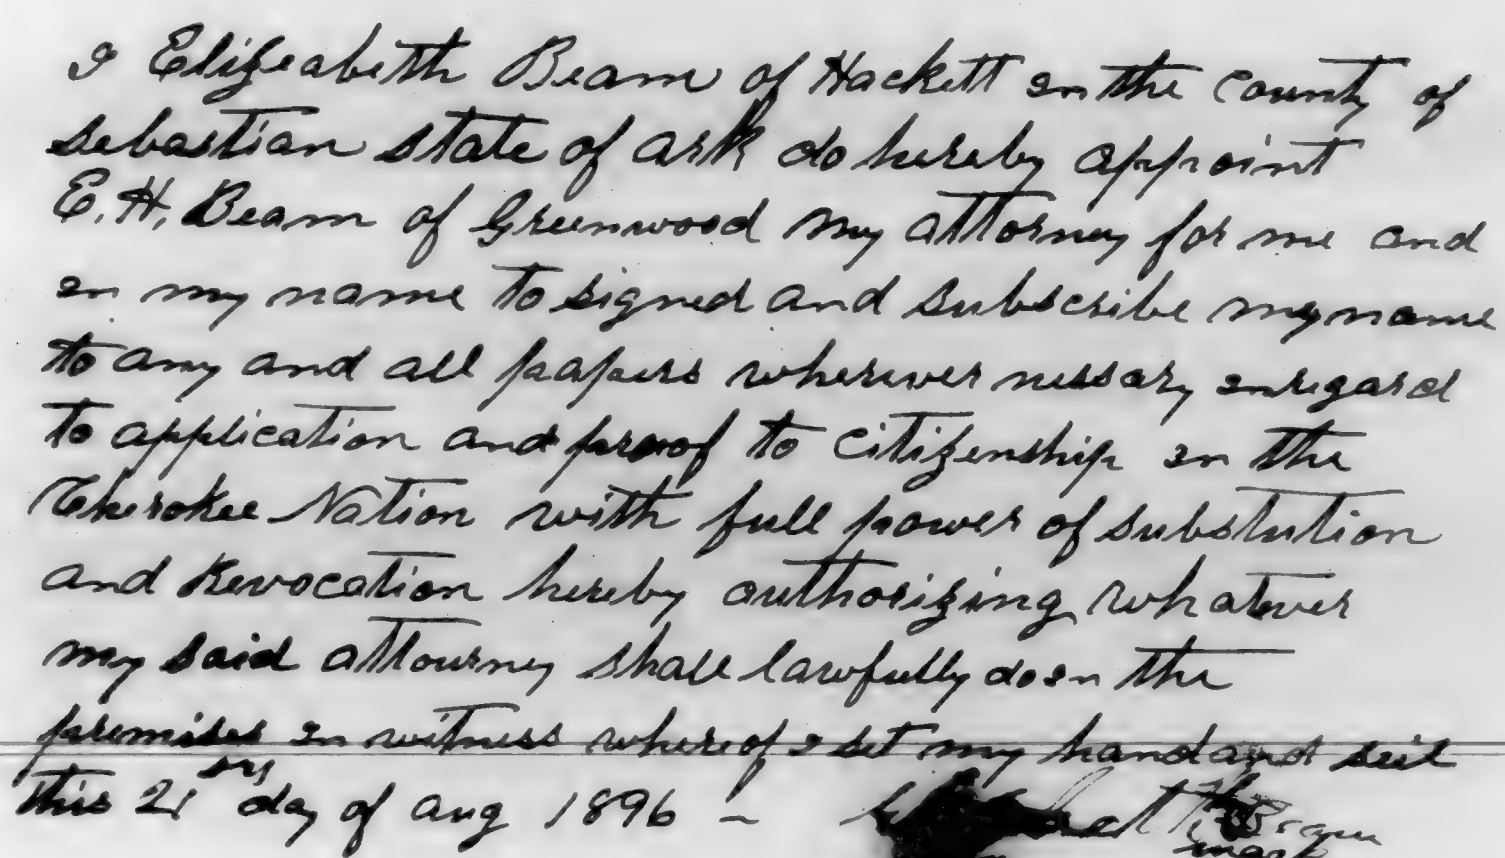 I Elizeabeth Beam of Hackett in the county of
Sebastian state of ark do hereby appoint
E. H. Beam of Greenwood my attorney for me and
in my name to signed and subscribe my name
to any and all papers wherever nessary in regard
to application and proof to citizenship in the
Cherokee Nation with full power of substution
and Revocation hereby authorizing whatever
my said attourney shall lawfully do in the
premises in witness whereof I set my hand and seil
this 21 day of aug 1896 –
Beam
mark